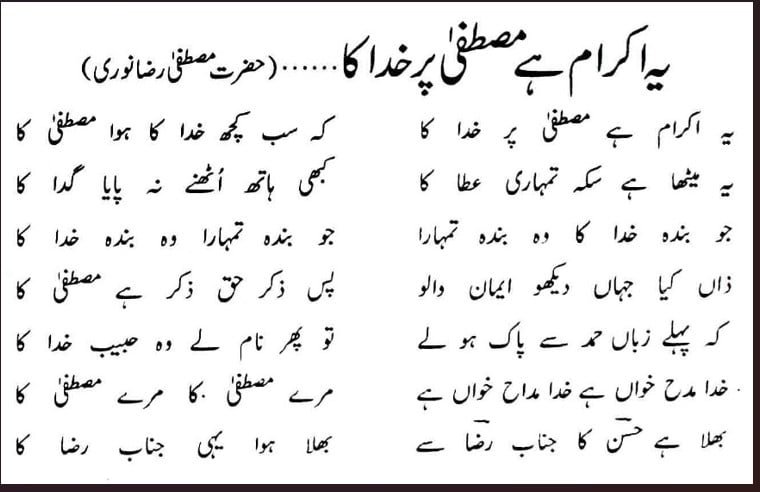 یہ اکرام ہے مصطفیٰ پر خدا کا......(حضرت مصطفیٰ رضا نوری)
یہ اکرام ہے مصطفیٰ پر خدا کا کہ سب کچھ خدا کا ہوا مصطفیٰ کا
یہ میٹھا ہے سکہ تمہاری عطا کا کبھی ہاتھ اُٹھنے نہ پایا گدا کا
جو بندہ خدا کا وہ بندہ تمہارا جو بندہ تمہارا وہ بندہ خدا کا
ذاں کیا جہاں دیکھو ایمان والو پس ذکر حق ذکر ہے مصطفیٰ کا
کہ پہلے زباں حمد سے پاک ہو لے تو پھر نام لے وہ حبیب خدا کا
خدا مدح خواں ہے خدا مداح خواں ہے مرے مصطفیٰ کا مرے مصطفیٰ کا
بھلا ہے حسن کا جناب رضا سے بھلا ہوا یہی جناب رضا کا